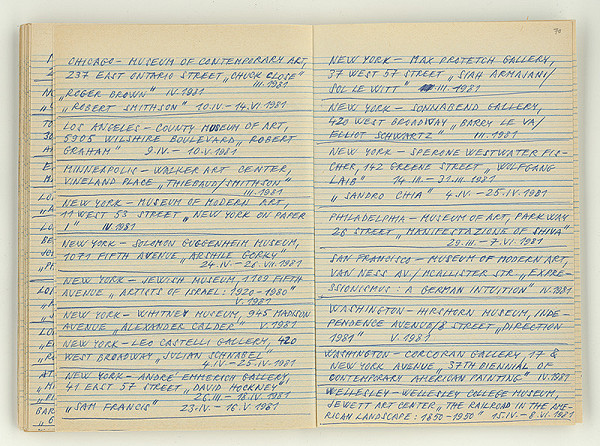 CHICAGO – MUSEUM OF CONTEMPORARY ART,
237 EAST ONTARIO STREET „CHUCK CLOSE"
III.1981
„ROGER BROWN" IV.1981
„ROBERT SMITHSON" 10.IV.-14.VI.1981
LOS ANGELES – COUNTY MUSEUM OF ART,
5905 WILSHIRE BOULEVARD „ROBERT
GRAHAM" 9.IV.- 10.V.1981
MINNEAPOLIS – WALKER ART CENTER,
VINELAND PLACE „THIEBAUD/SMITHSON"
III.1981
NEW YORK – MUSEUM OF MODERN ART,
11 WEST 53 STREET „NEW YORK ON PAPER
I" IV.1981
NEW YORK – SOLOMON GUGGENHEIM MUSEUM,
1071 FIFTH AVENUE „ARSHILE GORKY"
24.IV.-26.VII.1981
NEW YORK – JEWISH MUSEUM, 1109 FIFTH
AVENUE „ARTISTS OF ISRAEL: 1920-1980"
V.1981
NEW YORK – WHITNEY MUSEUM, 945 MADISON
AVENUE „ALEXANDER CALDER" V.1981
NEW YORK – LEO CASTELLI GALLERY, 420
WEST BROADWAY „JULIAN SCHNABEL"
4.IV.-25.IV.1981
NEW YORK – ANDRÉ EMMERICH GALLERY,
41 EAST 57 STREET „DAVID HOCKNEY"
26.III.-18.IV.1981
„SAM FRANCIS" 23.IV.-16.V.1981
70
NEW YORK – MAX PROTETCH GALLERY,
37 WEST 57 STREET „SIAH ARMAJANI/
SOL LE WITT" III.1981
NEW YORK – SONNABEND GALLERY,
420 WEST BROADWAY „BARRY LE VA/
ELLIOT SCHWARTZ" III.1981
NEW YORK – SPERONE WESTWATER FIS-
CHER, 142 GREENE STREET „WOLFGANG
LAIB" 14.III.-31.III.1981
„SANDRO CHIA" 4.IV.-25.IV.1981
PHILADELPHIA – MUSEUM OF ART, PARKWAY
26 STREET „MANIFESTAZIONE OF SHIVA"
29.III.-7.VI.1981
SAN FRANCISCO – MUSEUM OF MODERN ART,
VAN NESS AV./MCALLISTER STR. „EXPRE-
SSIONISMUS: A GERMAN INTUITION" IV.1981
WASHINGTON – HIRSHORN MUSEUM, INDE-
PENDENCE AVENUE/8 STREET „DIRECTION
1981" V.1981
WASHINGTON – CORCORAN GALLERY, 17 &
NEW YORK AVENUE „37TH BIENNIAL OF
CONTEMPORARY AMERICAN PAINTING" IV.1981
WELLESLEY – WELLESLEY COLLEGE MUSEUM,
JEWETT ART CENTER „THE RAILROAD IN THE AME-
RICAN LANDSCAPE: 1850-1950" 15.IV.-8.VI.1981